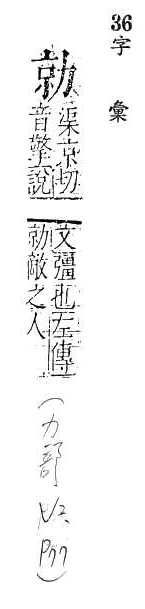 36字彙
勍
渠京切
音擎說
文彊也左傳
勍敵之人
(力部
P77)